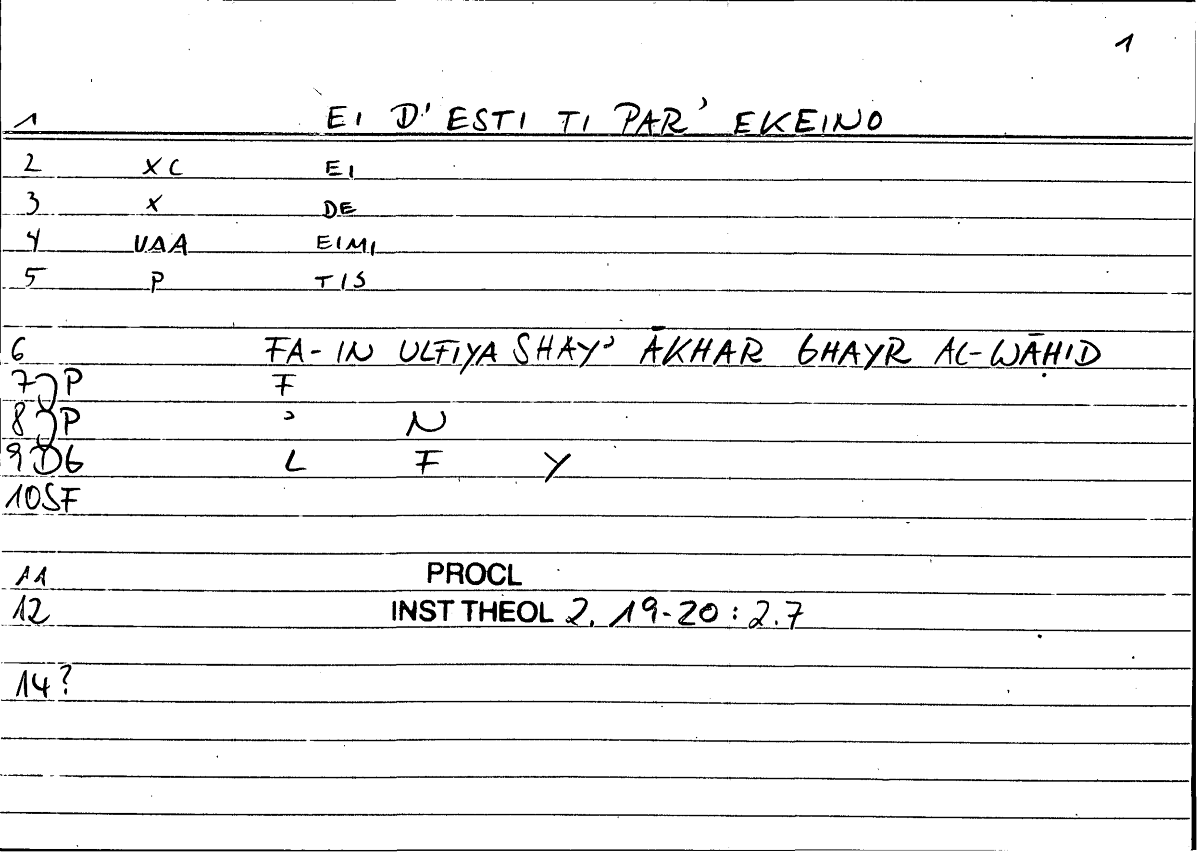 1
1 EI D' ESTI TI PAR' EKEINO
2 XC EI
3 X DE
4 VAA EIMI
5 P TIS
6 FA-IN ULFIYA SHAY' ĀKHAR GHAYR AL-WĀḤID
7 P F
8 P ʾ N
9 DG L F Y
10 SF
11 PROCL
12 INST THEOL 2. 19-20 : 2.7
14?